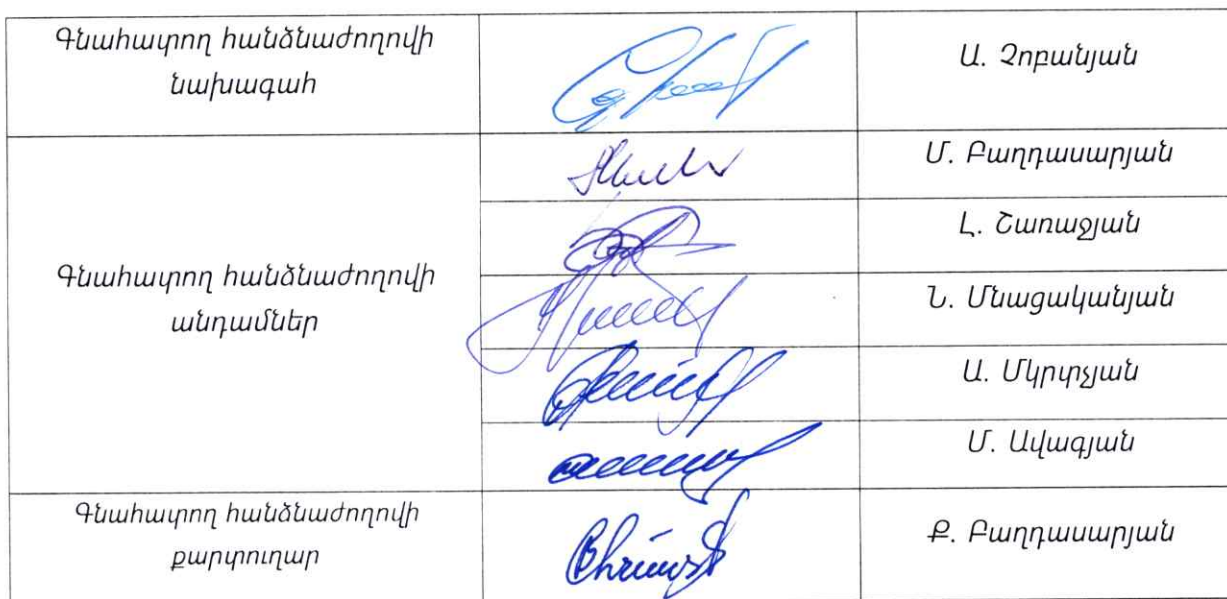 Գնահատող հանձնաժողովի
նախագահ
Ա. Չոբանյան
Գնահատող հանձնաժողովի
անդամներ
Մ. Բաղդասարյան
Լ. Շառաջյան
Ն. Մնացականյան
Ա. Մկրտչյան
Մ. Ավագյան
Գնահատող հանձնաժողովի
քարտուղար
Ք. Բաղդասարյան